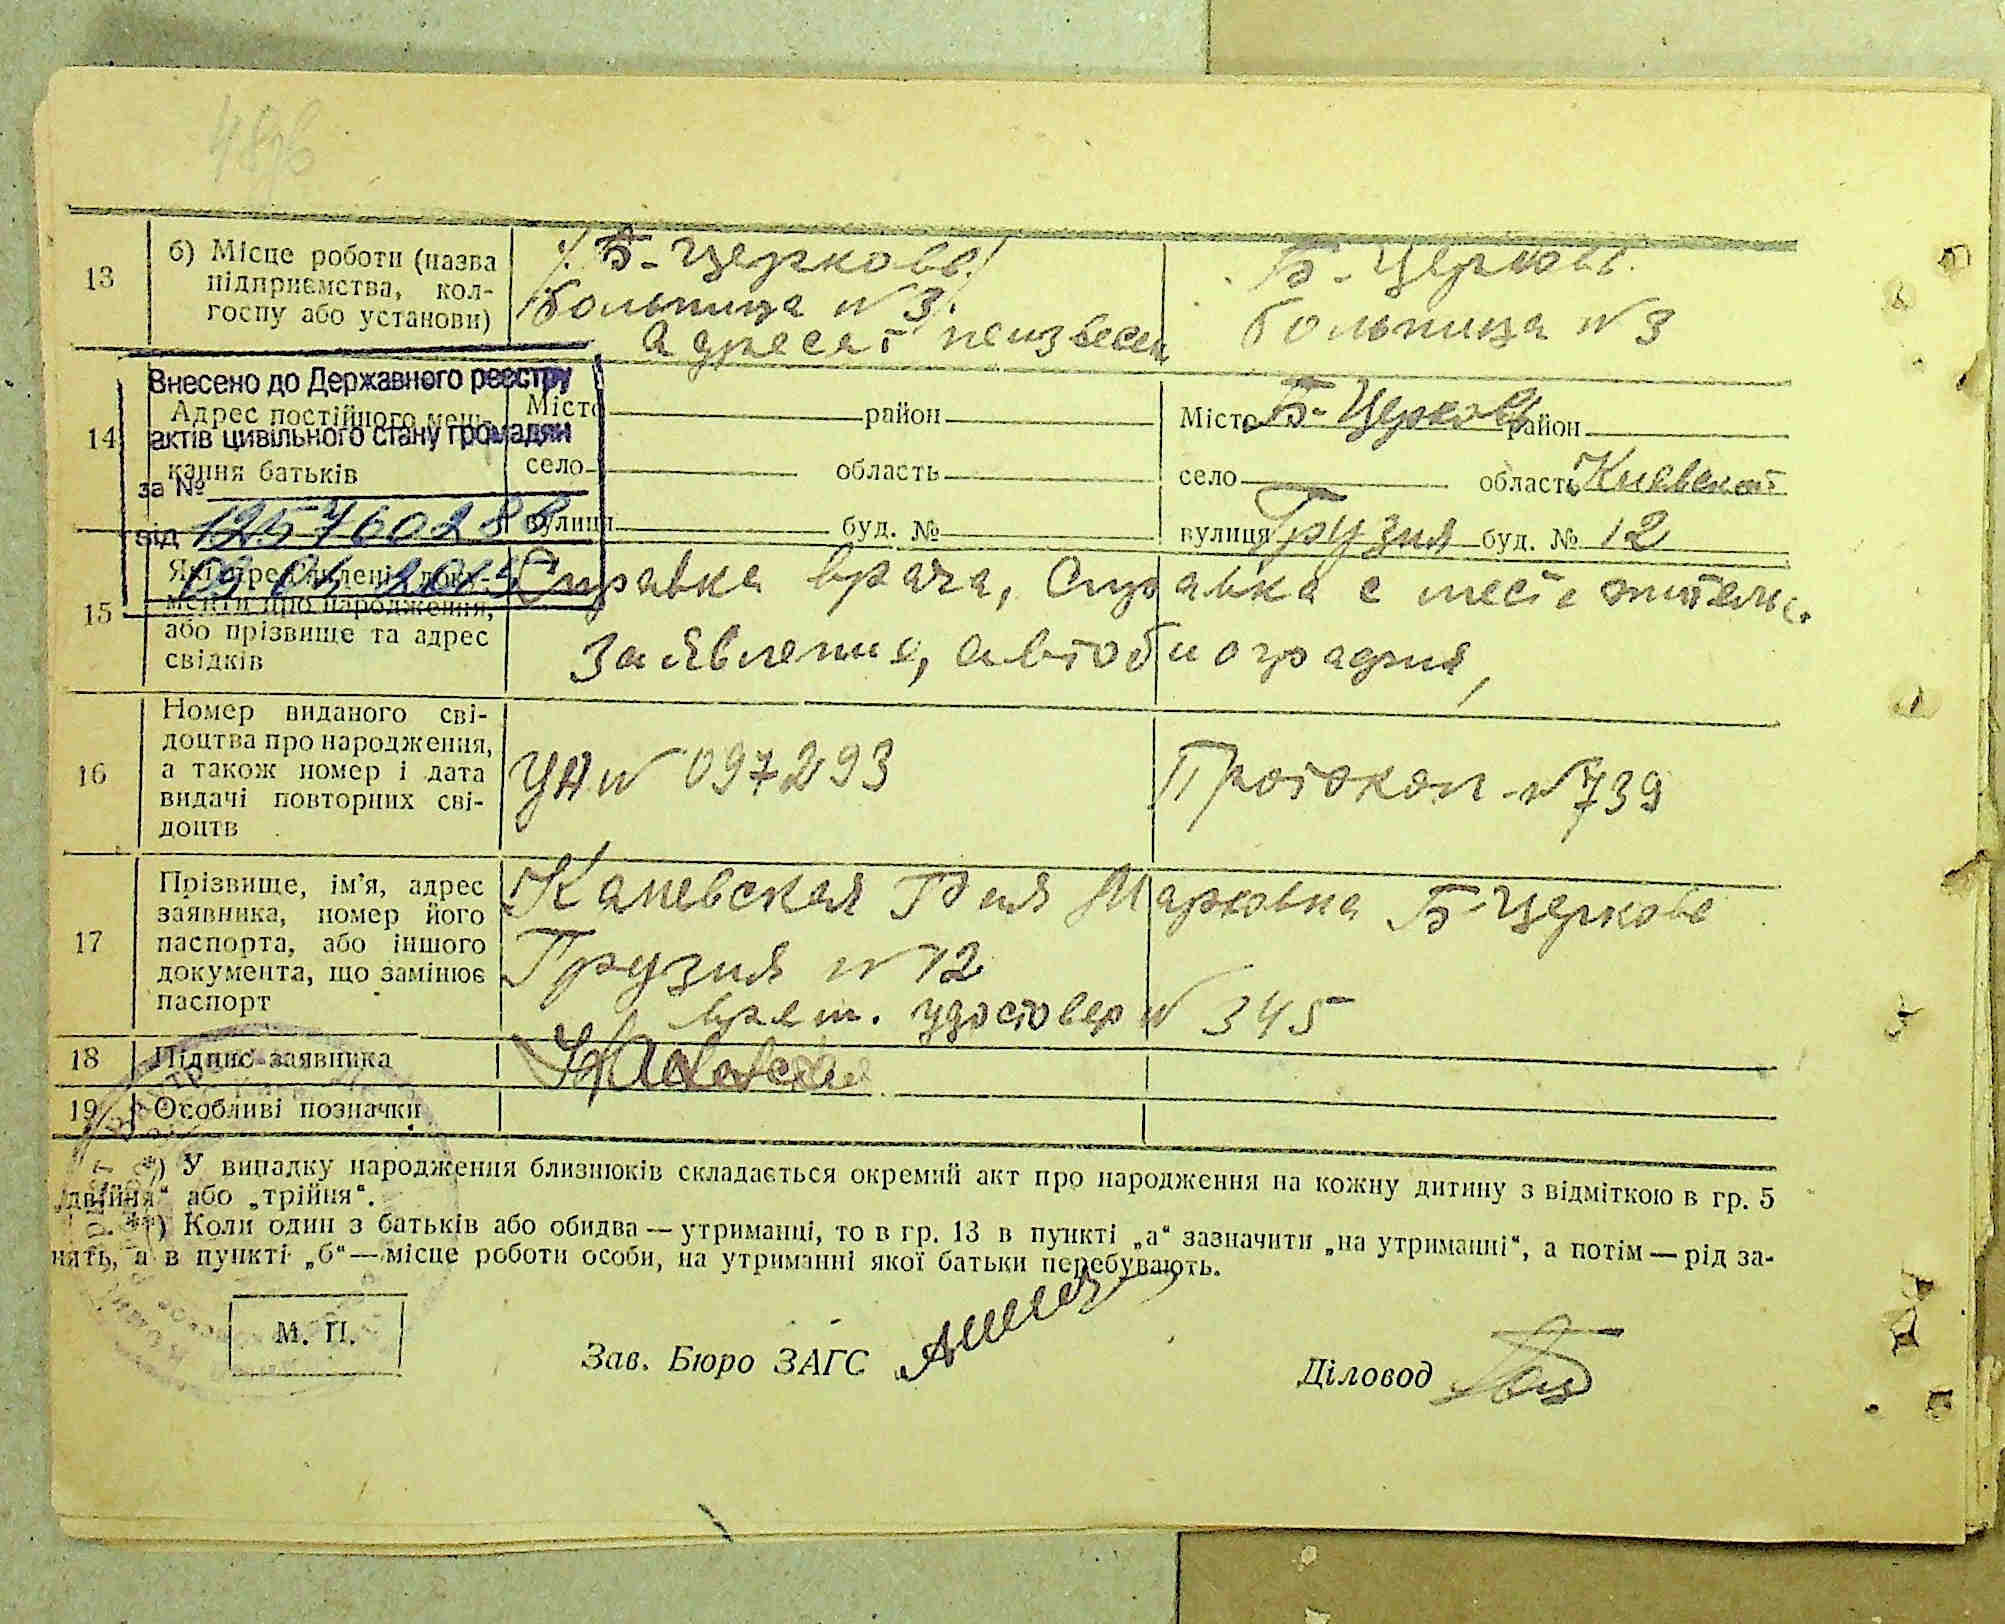 13
б) Місце роботи (назва
підприємства, кол-
госпу або установи)
Б-Церковь
больница N 3
Адресат неизвесен
Б-Церковь
больница N 3
Внесено до Державного реєстру
актів цивільного стану громадян
за №
від
14
Адрес постійного меш-
кання батьків
Місто район
село область
вулиця буд. №
Місто Б-Церковь район
село область Киевской
вулиця Грузия буд. № 12
15
менти про народження,
або прізвище та адрес
свідків
Справка врача, справка с места жительс.
Заявление, автобиография,
16
Номер виданого сві-
доцтва про народження,
а також номер і дата
видачі повторних сві-
доцтв
N 097293
Протокол N 739
17
Прізвище, ім'я, адрес
заявника, номер його
паспорта, або іншого
документа, що замінює
паспорт
Каневская Марковна Б-Церковь
Грузия N 12
врем. удостовер N 345
18
Підпис заявника
19
Особливі позначки
*) У випадку народження близнюків складається окремий акт про народження на кожну дитину з відміткою в гр. 5
„двійня“ або „трійня“.
**) Коли один з батьків або обидва — утриманці, то в гр. 13 в пункті „а“ зазначити „на утриманні“, а потім — рід за-
нять, а в пункті „б“ — місце роботи особи, на утриманні якої батьки перебувають.
М. П.
Зав. Бюро ЗАГС
Діловод